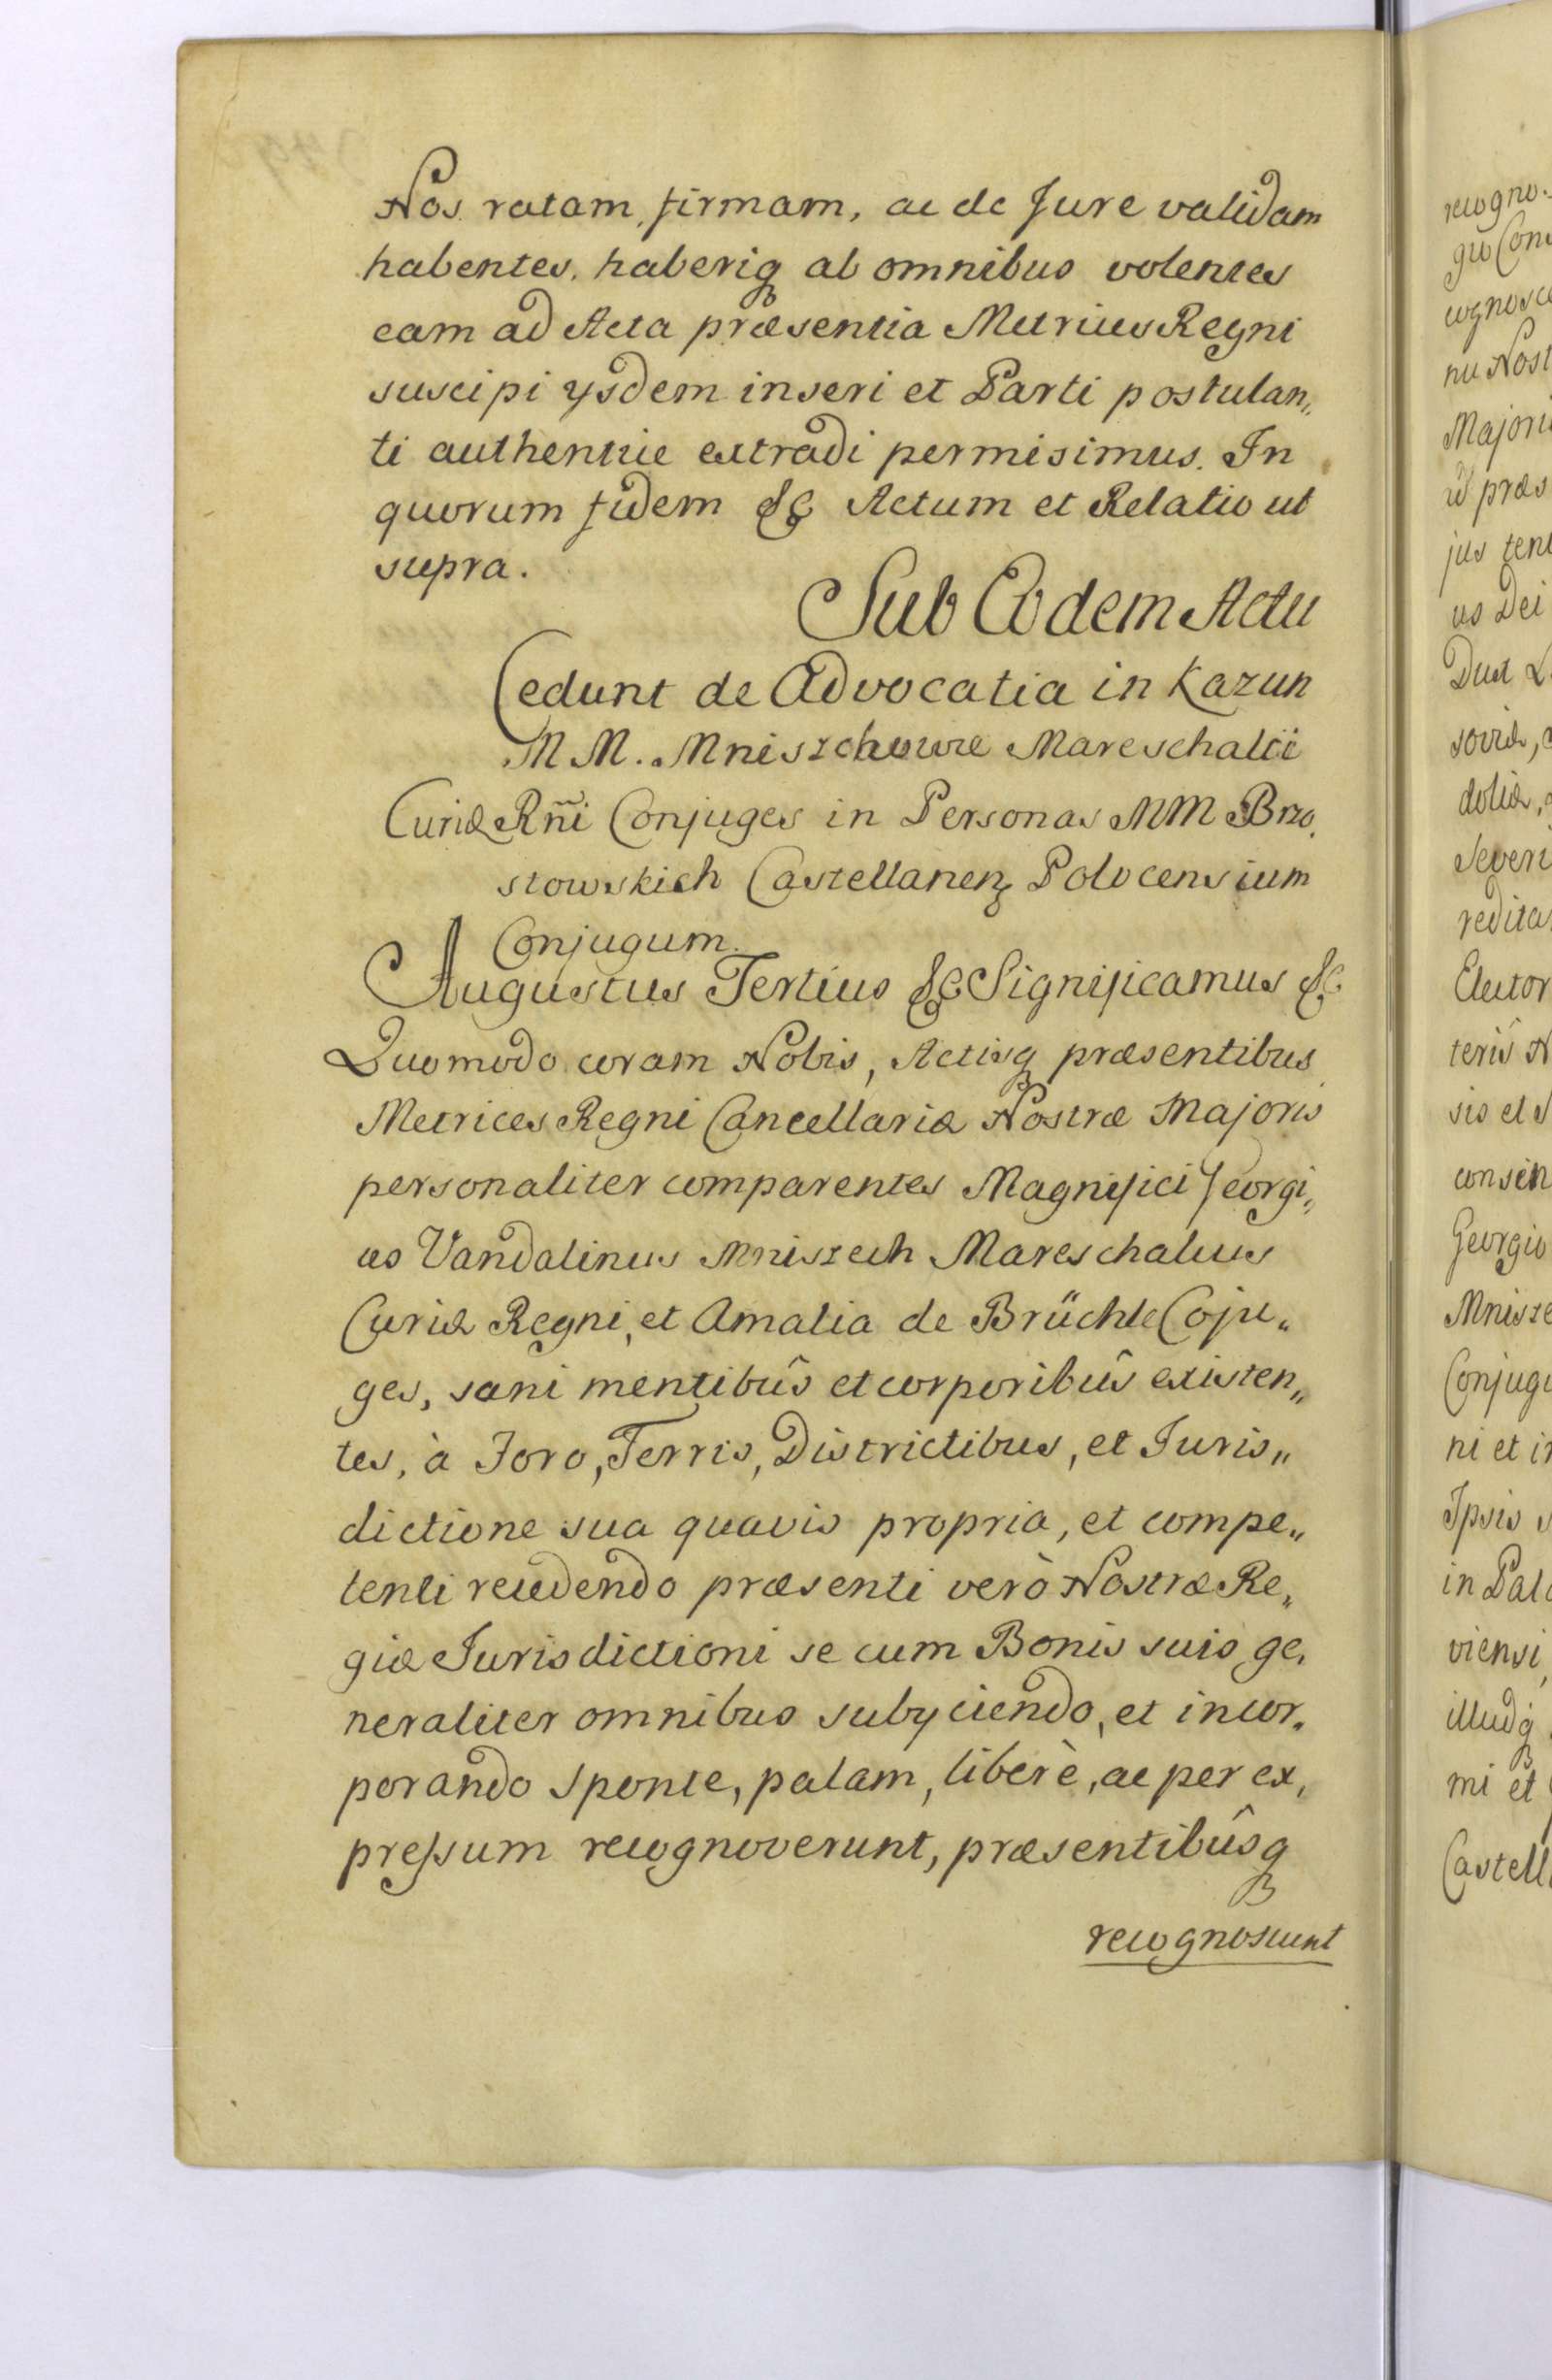 Nos ratam, firmam, ac de Jure validam
habentes, haberiq₃ ab omnibus volentes
eam ad Acta præsentia Metrices Regni
suscipi ysdem inseri et Parti postulan„
ti authentice extradi permisimus. In
quorum fidem &c Actum et Relatio ut
supra.
Sub Eodem Actu
Cedunt de Advocatia in Kazun
M M. Mniszchowie Mareschalcii
Curiæ Rñi Conjuges in Personas MM Brzo„
stowskich Castellanenʒ Polocensium
Conjugum.
Augustus Tertius &c Significamus &c
Quomodo coram Nobis, Actisq₃ præsentibus
Metrices Regni Cancellariæ Nostræ Majoris
personaliter comparentes Magnifici Georgi„
us Vandalinus Mniszech Mareschalcus
Curiæ Regni, et Amalia de Brüchle Coju„
ges, sani mentibûs et corporibûs existen„
tes, à Foro, Terris, Districtibus, et Juris„
dictione sua quavis propria, et compe„
tenti recedendo præsenti verò Nostræ Re„
giæ Jurisdictioni se cum Bonis suis ge„
neraliter omnibus subyciendo, et incor„
porando sponte, palam, liberè, ac per ex„
pressum recognoverunt, præsentibûsq₃
recognoscunt
recogno„
gio Con
cognosce
nu Nost
Majori
id præs
jus ten
us Dei
Dux L
soviæ,
doliæ,
Severi
redita
Elector
teriûs N
sis et
consen
Georgio
Mnisze
Conjugi
ni et i
Ipsis
in Pala
viensi
illudq₃
mi et
Castell